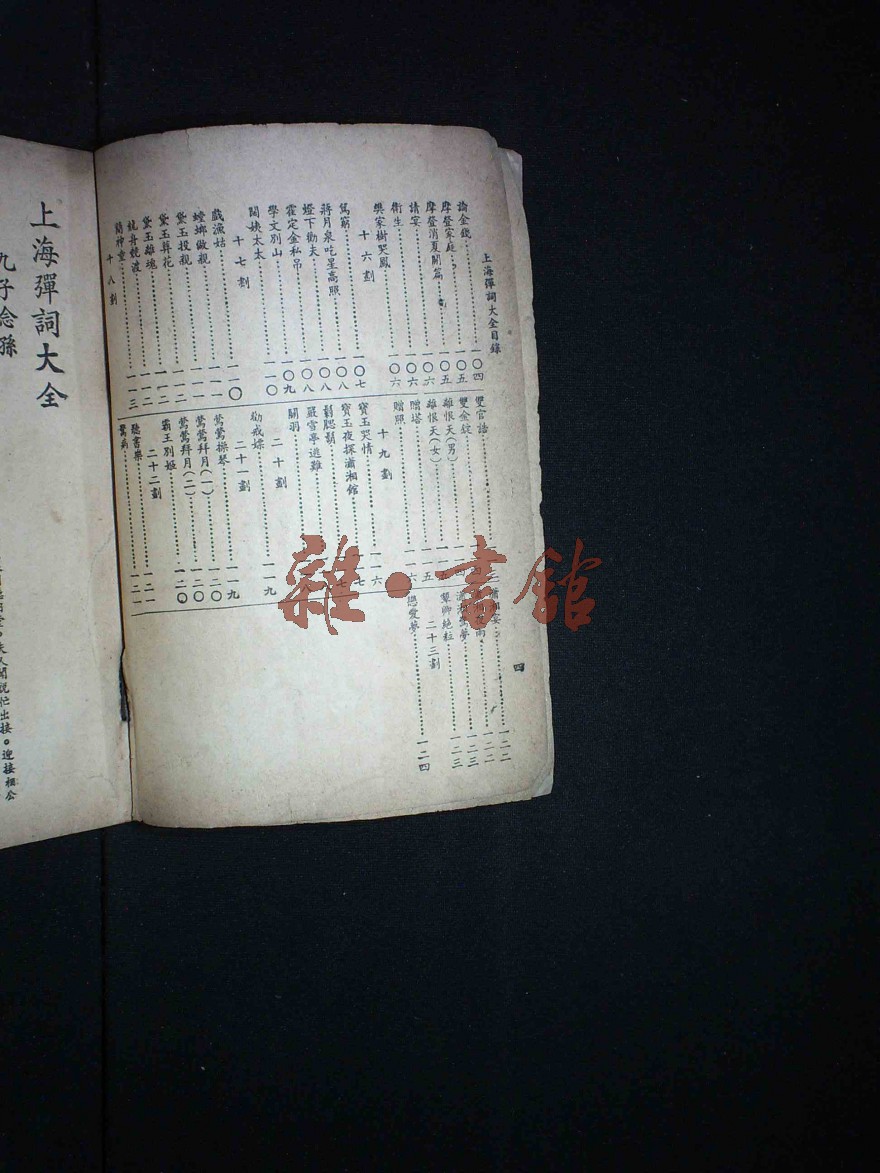 上海彈詞大全目錄
論金錢……一〇四
摩登家庭……一〇五
摩登消夏開篇……一〇五
請宴……一〇六
衛生……一〇六
樊家樹哭鳳……一〇六
十六劃
罵窮……一〇七
蔣月泉吃星高照……一〇八
燈下勸夫……一〇八
霍定金私吊……一〇九
學文別山……一一〇
閻姨太太
十七劃
戲漁姑……一一〇
螳螂做親……一一一
黛玉投親……一一一
黛玉葬花……一一二
黛玉離魂……一一二
競舟競渡……一一三
簡神童
十八劃
雙官誥
雙金錠
離恨天(男)
離恨天(女)……一一五
贈塔
贈照……一一六
十九劃
寶玉哭情……一一六
寶玉夜探瀟湘館
嚴雪亭逃難
二十劃
關羽
勸戒嫖……一一九
二十一劃
鶯鶯操琴……一一九
鶯鶯拜月(一)……一二〇
鶯鶯拜月(二)……一二〇
霸王別姬……一二〇
二十二劃
聽書樂……一二一
驚病……一二一
一二二
一二二
一二三
顰卿絕粒……一二三
二十三劃
戀愛夢……一二四
四
上海彈詞大全
九子念孫
夫人聞說忙出接。迎接相公
雜·書館